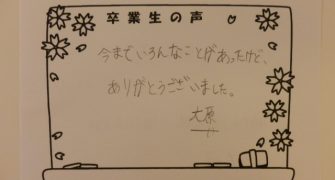 卒業生の声
今までいろんなことがあったけど、
ありがとうございました。
大原